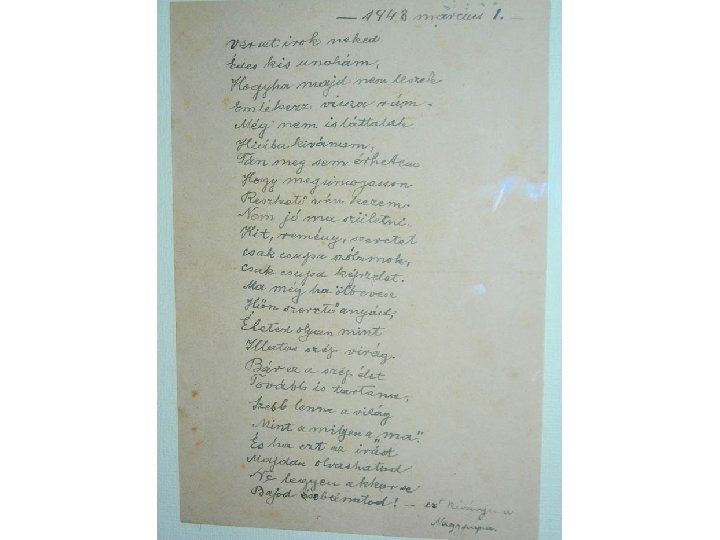 — 1948 március 1. —
Verset irok neked
Édes kis unokám,
Hogyha majd nem leszek
Emlékezz vissza rám.
Még nem is láttalak
Hiába kivánom,
Tán meg sem érhetem
Hogy megsimogasson
Reszkető vén kezem.
Nem jó ma születni.
Hit, remény, szeretet
csak csupa szólamok,
csak csupa képzelet.
Ma még ha ölbe vesz
Hőn szerető anyád,
Életed olyan mint
Illatos szép virág.
Bár ez a szép élet
Tovább is tartana,
Szebb lenne a világ
Mint a milyen a „ma".
És ha ezt az irást
Majdan olvashatod
Ne legyen akkor se
Bajod se bánatod! — ezt kivánja a
Nagypapa.